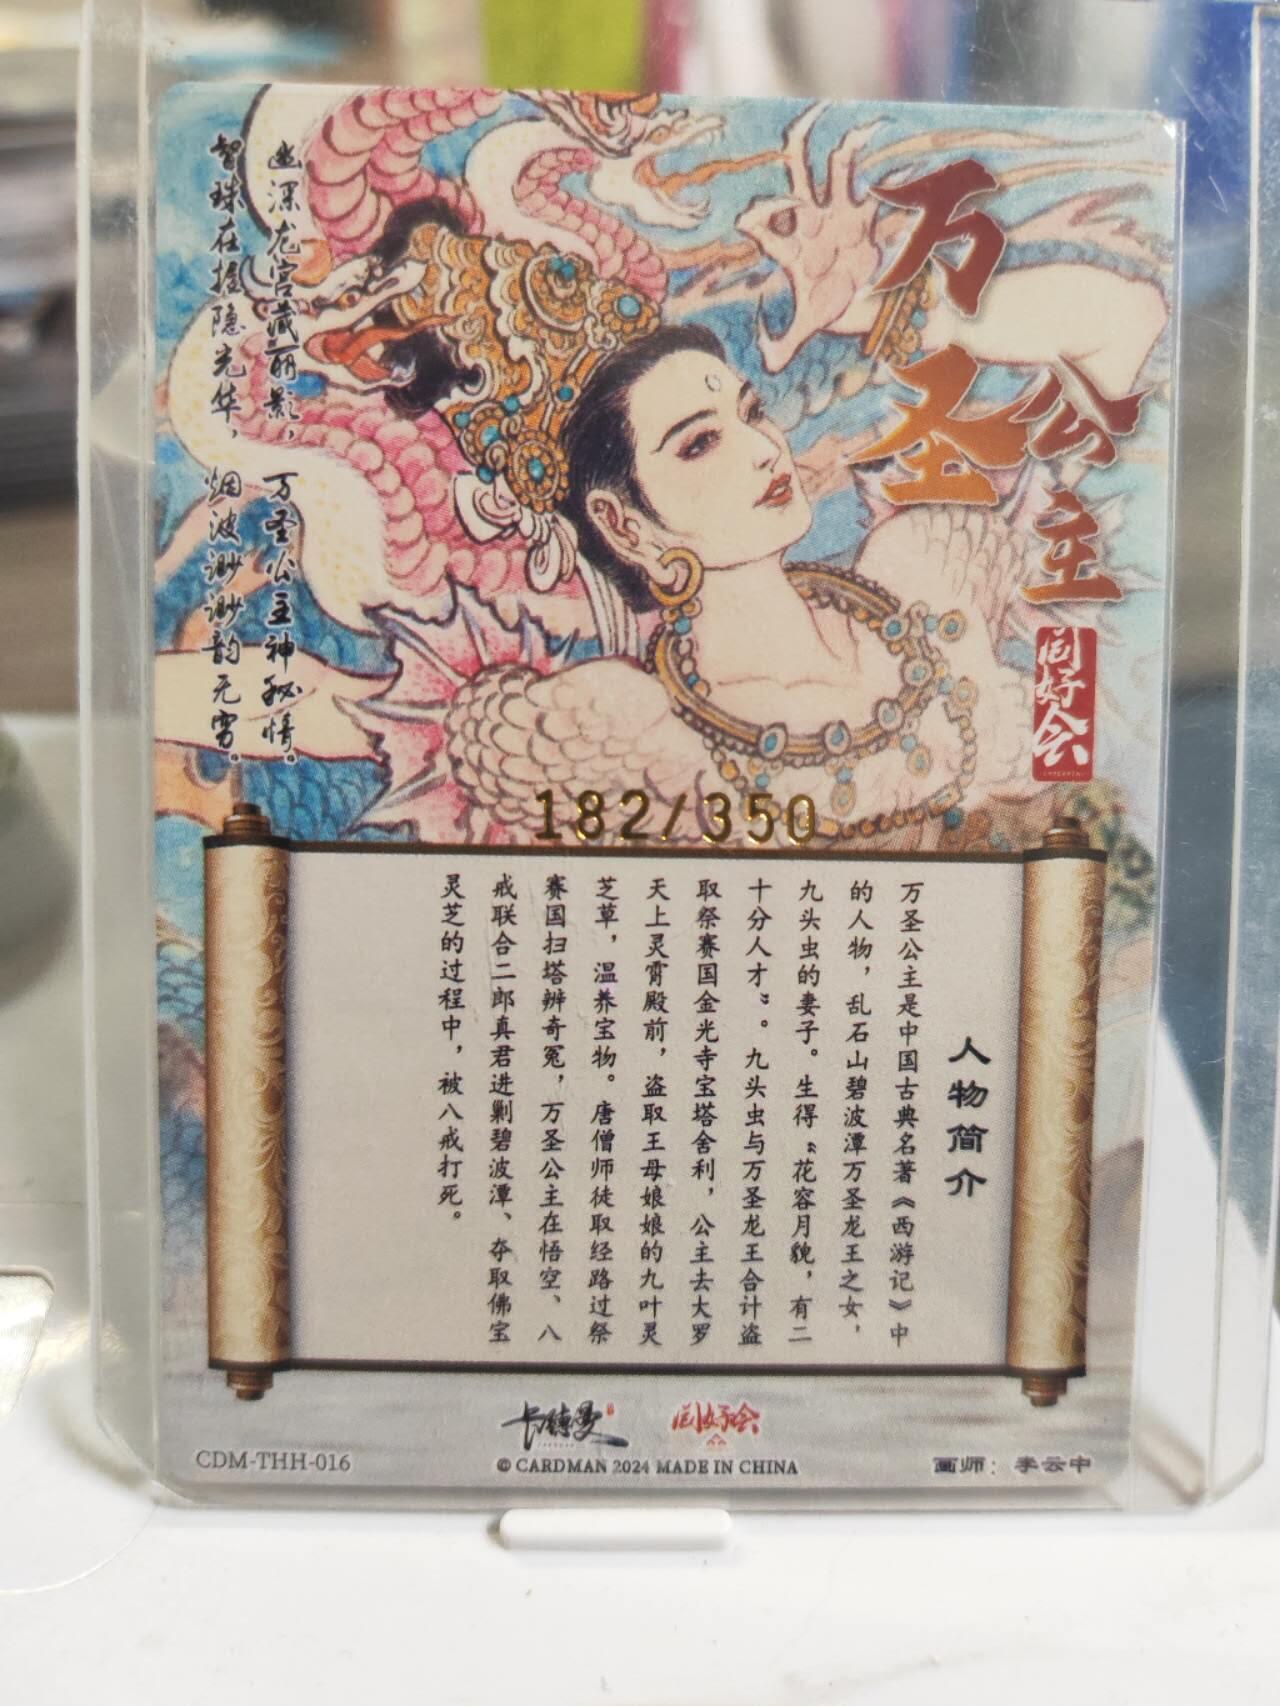 万圣公主
同好会
幽深龙宫藏丽影，万圣公主神秘情。
智珠在握隐光华，烟波渺渺韵无穷。
182/350
人物简介
万圣公主是中国古典名著《西游记》中
的人物，乱石山碧波潭万圣龙王之女，
九头虫的妻子。生得“花容月貌，有二
十分人才”。九头虫与万圣龙王合计盗
取祭赛国金光寺宝塔舍利，公主去大罗
天上灵霄殿前，盗取王母娘娘的九叶灵
芝草，温养宝物。唐僧师徒取经路过祭
赛国扫塔辨奇冤，万圣公主在悟空、八
戒联合二郎真君进剿碧波潭、夺取佛宝
灵芝的过程中，被八戒打死。
卡德曼
同好会
CDM-THH-016
© CARDMAN 2024 MADE IN CHINA
画师：李云中